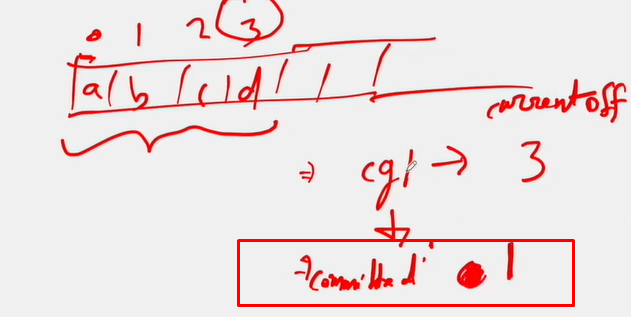 0 1 2 3
a b c d
current off
⇒ cg1 → 3
→ committed 1